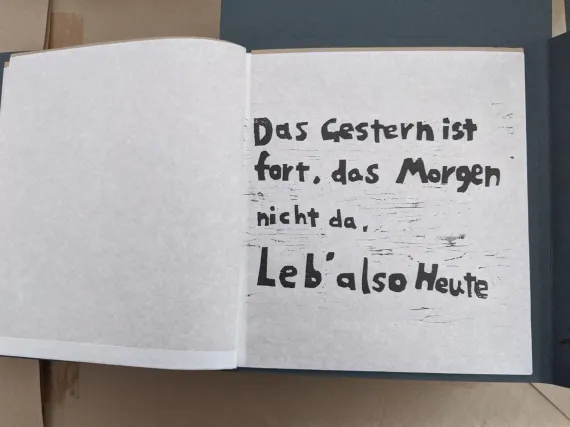 Das Gestern ist
fort, das Morgen
nicht da,
Leb' also Heute